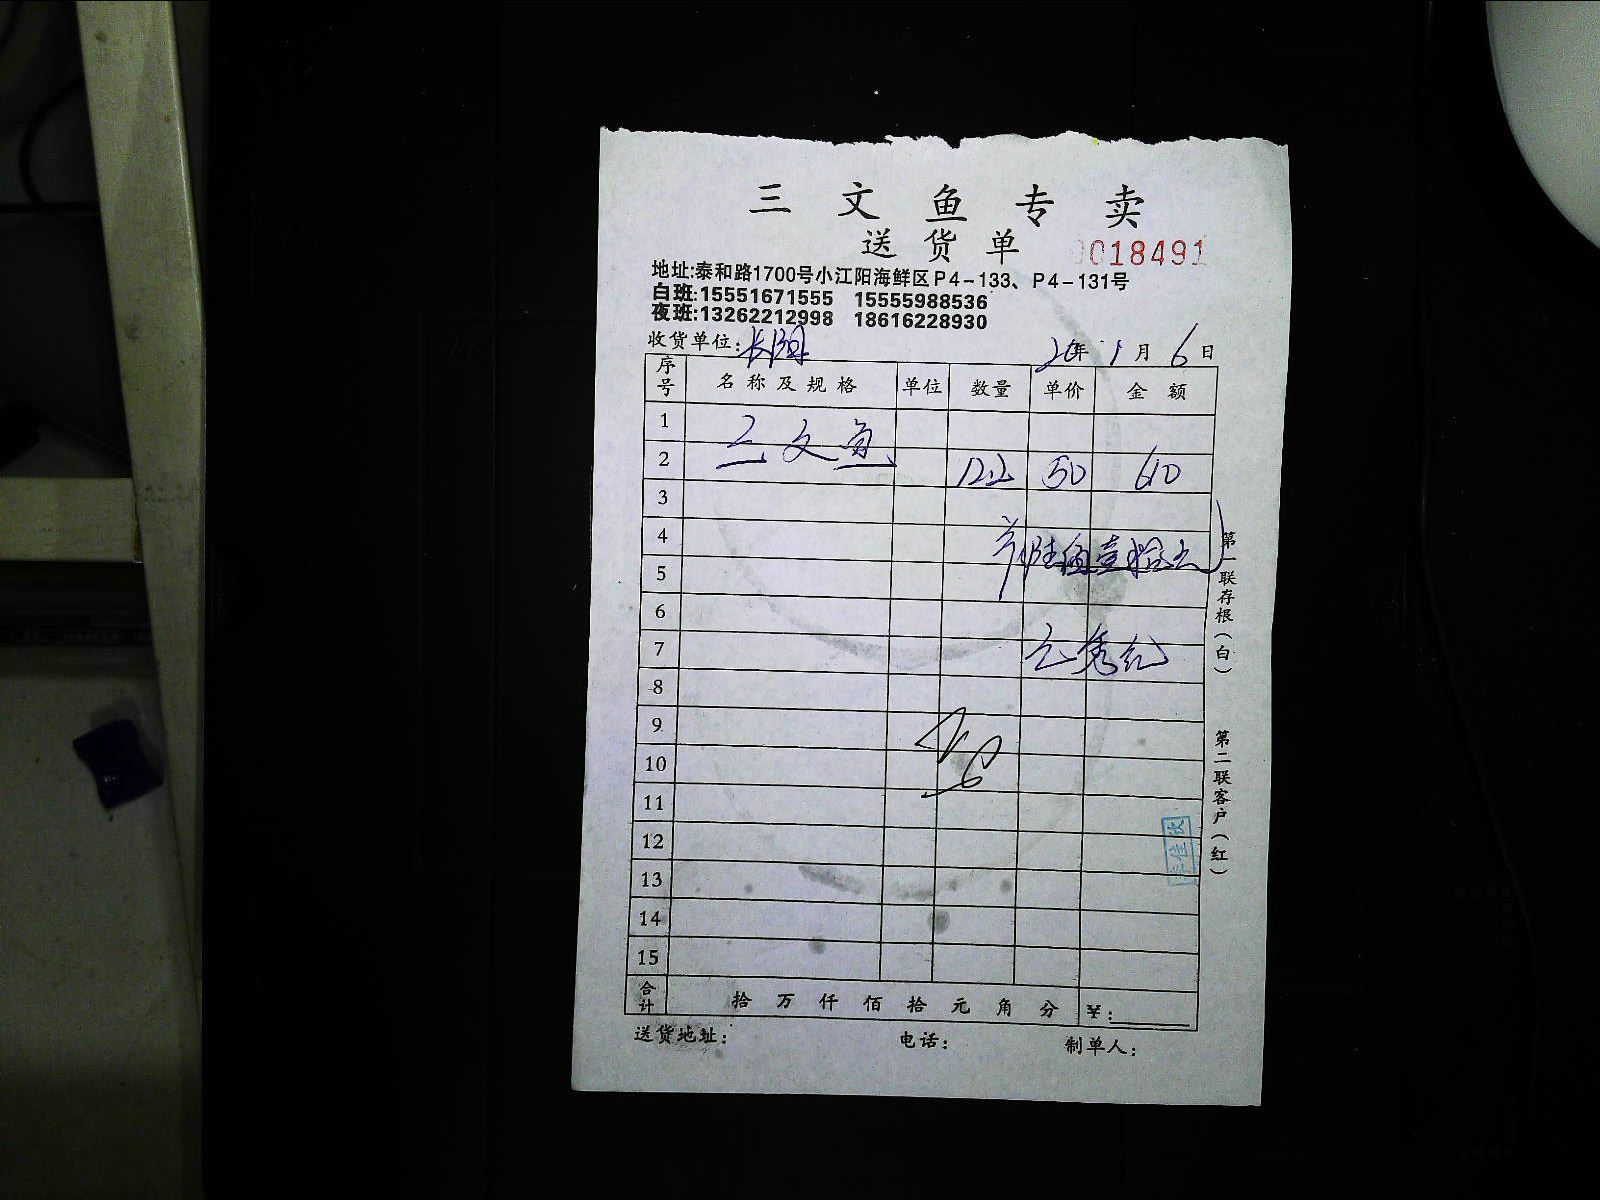 三文鱼专卖
送货单 0018491
地址:泰和路1700号小江阳海鲜区P4-133、P4-131号
白班:15551671555 15555988536
夜班:13262212998 18616228930
收货单位: 长阳 20年 1月 6日
序号 名称及规格 单位 数量 单价 金额
1 三文鱼
2 12.2 50 610
3
4 陆佰壹拾元
5
6
7
8
9
10
11
12
13
14
15
合计 拾 万 仟 佰 拾 元 角 分 ¥:
送货地址: 电话: 制单人:
第一联存根(白)
第二联客户(红)